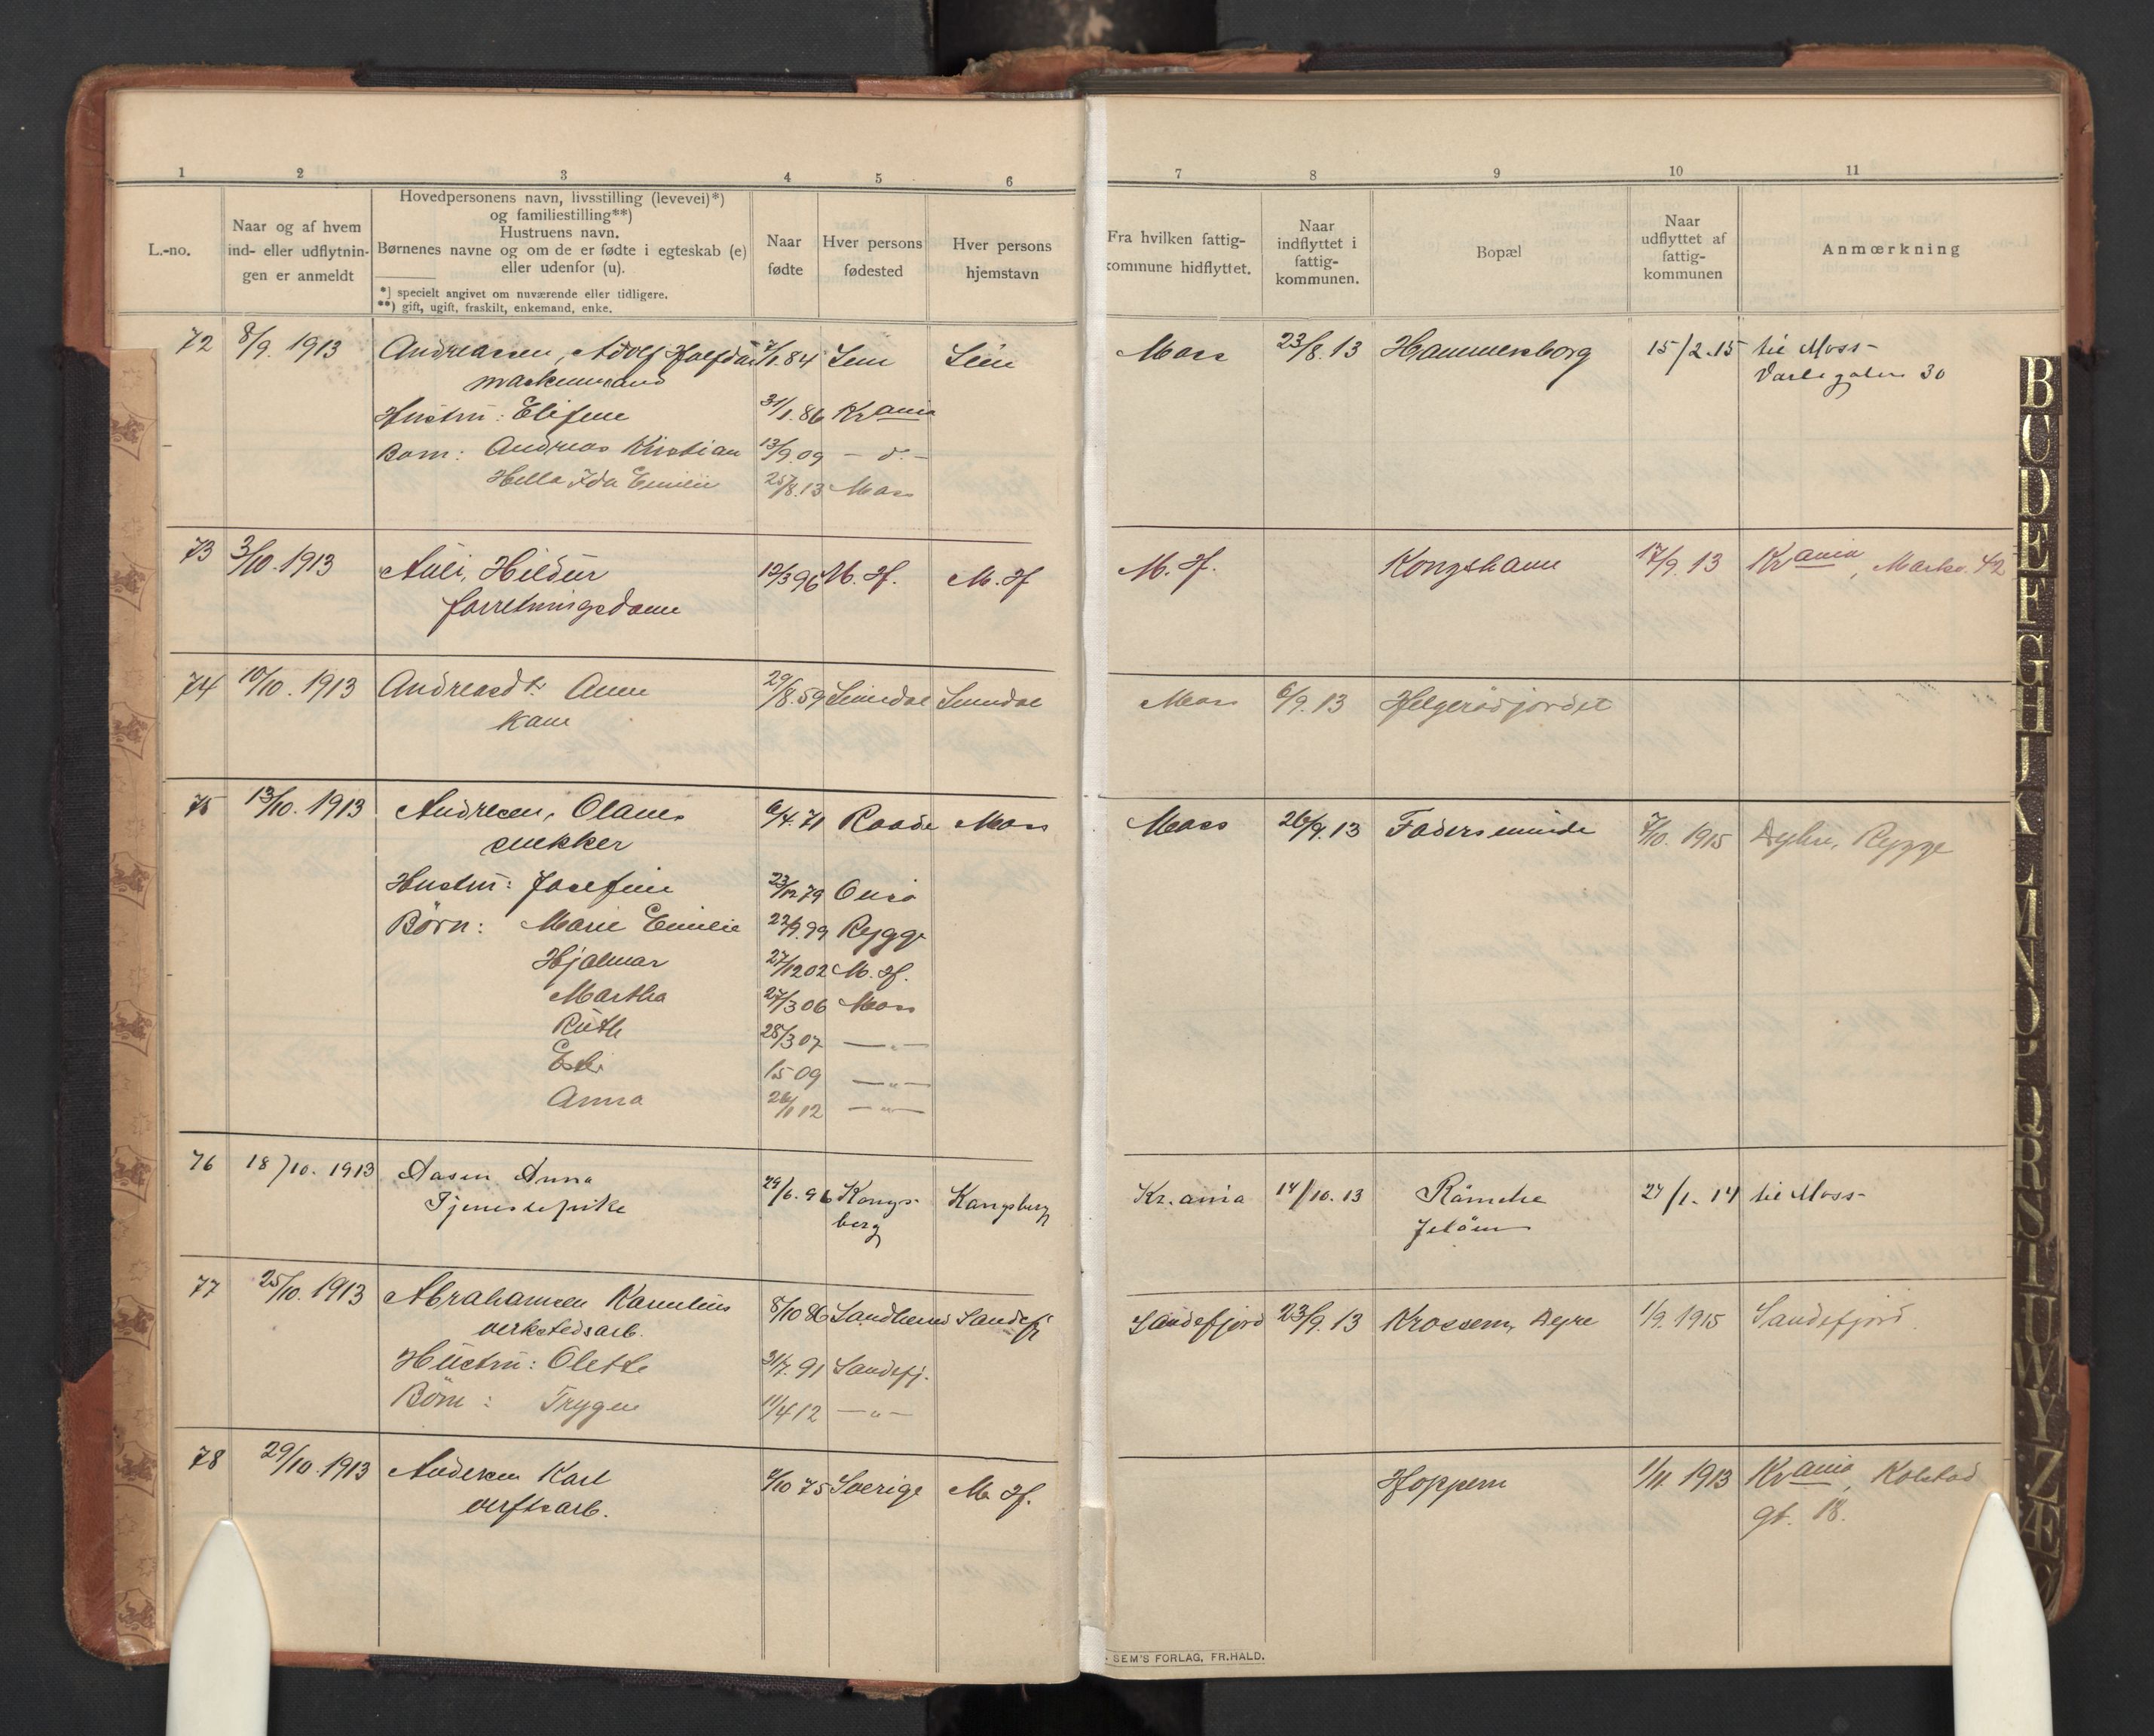 1 2 3 4 5 6 7 8 9 10 11
L.-no.
Naar og af hvem
ind- eller udflytnin-
gen er anmeldt
Hovedpersonens navn, livsstilling (levevei)*)
og familiestilling**)
Hustruens navn.
Børnenes navne og om de er fødte i egteskab (e)
eller udenfor (u).
*) specielt angivet om nuværende eller tidligere.
**) gift, ugift, fraskilt, enkemand, enke.
Naar
fødte
Hver persons
fødested
Hver persons
hjemstavn
Fra hvilken fattig-
kommune hidflyttet.
Naar
indflyttet i
fattig-
kommunen.
Bopæl
Naar
udflyttet af
fattig-
kommunen
Anmærkning
72 8/9. 1913 Andreassen, Adolf Halfdan 7/1.84 Sem Sem Moss 23/8.13 Hammersborg 15/2.15 til Moss-
maskinmand Varlegaten 30
Hustru: Elifine 31/1.86 Krania
Barn: Andreas Kristian 13/9.09 - d. -
Hella Ida Emilie 25/8.13 Moss
73 3/10.1913 Auli, Hildur 12/3 96 M. H. M. H M. H. Kongshavn 17/9.13 Krania, Markv. 42
forretningsdame
74 10/10. 1913 Andreasdtr Anne 29/8.59 Sundal Sundal Moss 6/9.13 Helgerødjordet
kone
75 13/10. 1913 Andresen, Olaves 6/4.71 Raade Moss Moss 26/9.13 Fodersminde 7/10. 1915 Rygge
snekker
Hustru: Josefine 23/12 79 Onsø
Børn: Marie Emilie 22/9.99 Rygge
Hjalmar 27/12 02 M. H.
Martha 27/3 06 Moss
Ruth 28/3 07 — „ —
Esli 15 09 — „ —
Anna 26/1 12 — „ —
76 18/10. 1913 Aasen Anna 29/6. 96 Kongs- Kongsberg Kr.ania 14/10. 13 Rämche 27/1. 14 til Moss-
Tjenestepike berg Jeløen
77 25/10. 1913 Abrahamsen Kornelius 8/10 86 Sandherred Sandefj Sandefjord 23/9.13 Krossern, Depre 1/9. 1915 Sandefjord.
verkstedsarb.
Hustru: Olette 31/7. 91 Sandefj.
Børn: Trygve 11/4 12 — „ —
78 29/10. 1913 Andersen Karl 2/10 75 Sverige M. H. Hoppern 1/11. 1913 Krania, Kolstad
verftsarb. gt. 18.
SEM'S FORLAG, FR.HALD.
B
C
D
E
F
G
H
J
K
L
M
N
O
P
Q
R
S
T
U
W
Y
Z
Æ